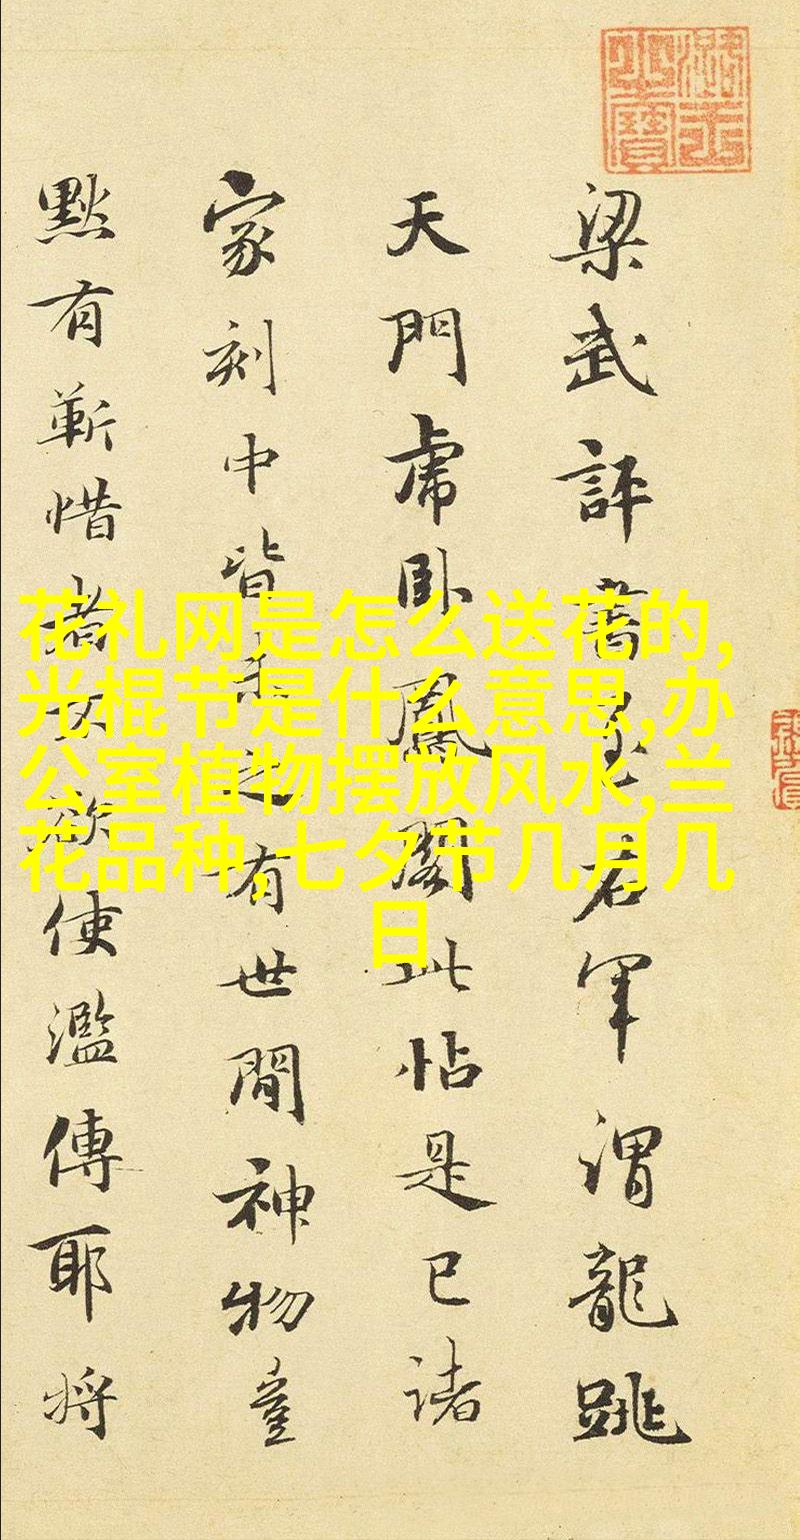 梁武評書至右軍謂龍跳
天門虎卧鳳閣此帖是已諸
家刻中皆未之有世間神物豈
黙有靳惜者不欲使濫傳耶將
花礼网是怎么送花的,
光棍节是什么意思,办
公室植物摆放风水,兰
花品种,七夕节几月几
日